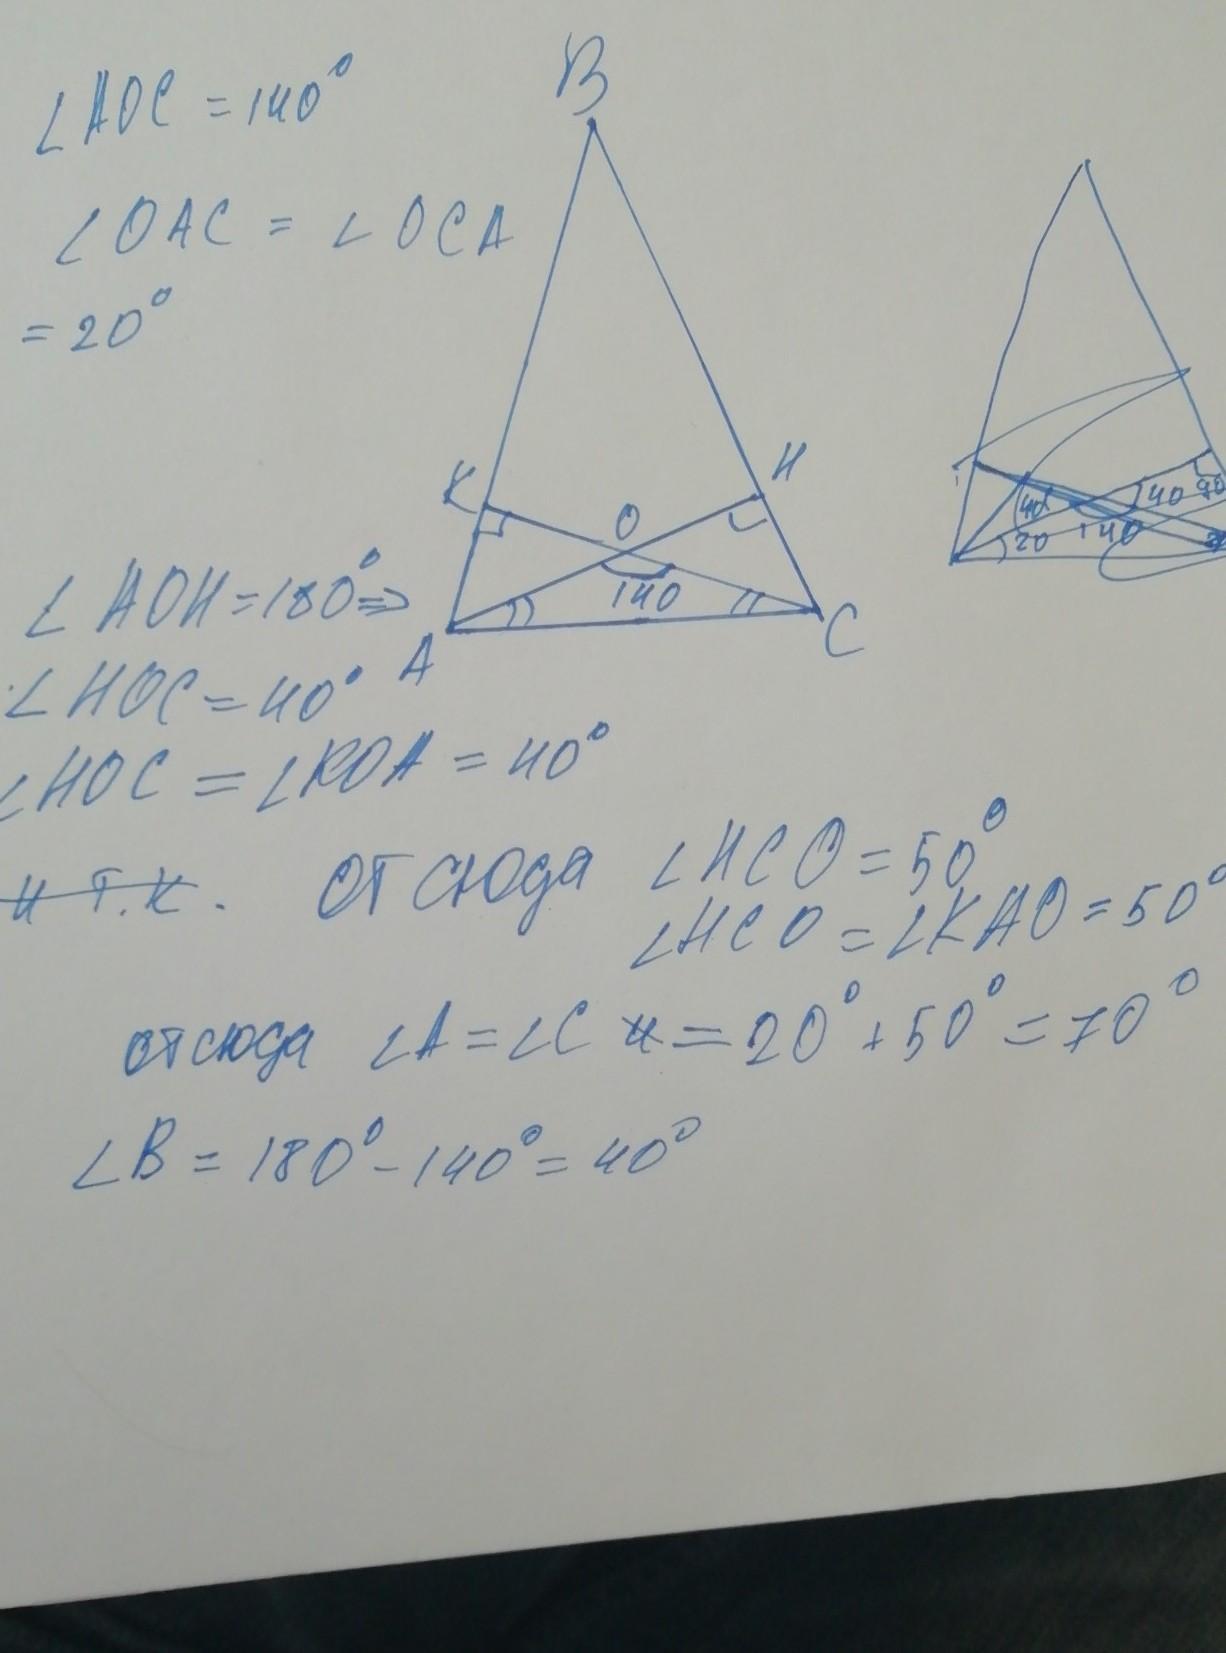 ∠AOC = 140°
∠OAC = ∠OCA
= 20°
B
K
H
O
140
A
C
40
20
140
140
90
∠AOH = 180° ⇒
∠HOC = 40°
∠HOC = ∠KOA = 40°
и т.к. отсюда ∠HCO = 50°
∠HCO = ∠KAO = 50°
отсюда ∠A = ∠C = 20° + 50° = 70°
∠B = 180° - 140° = 40°